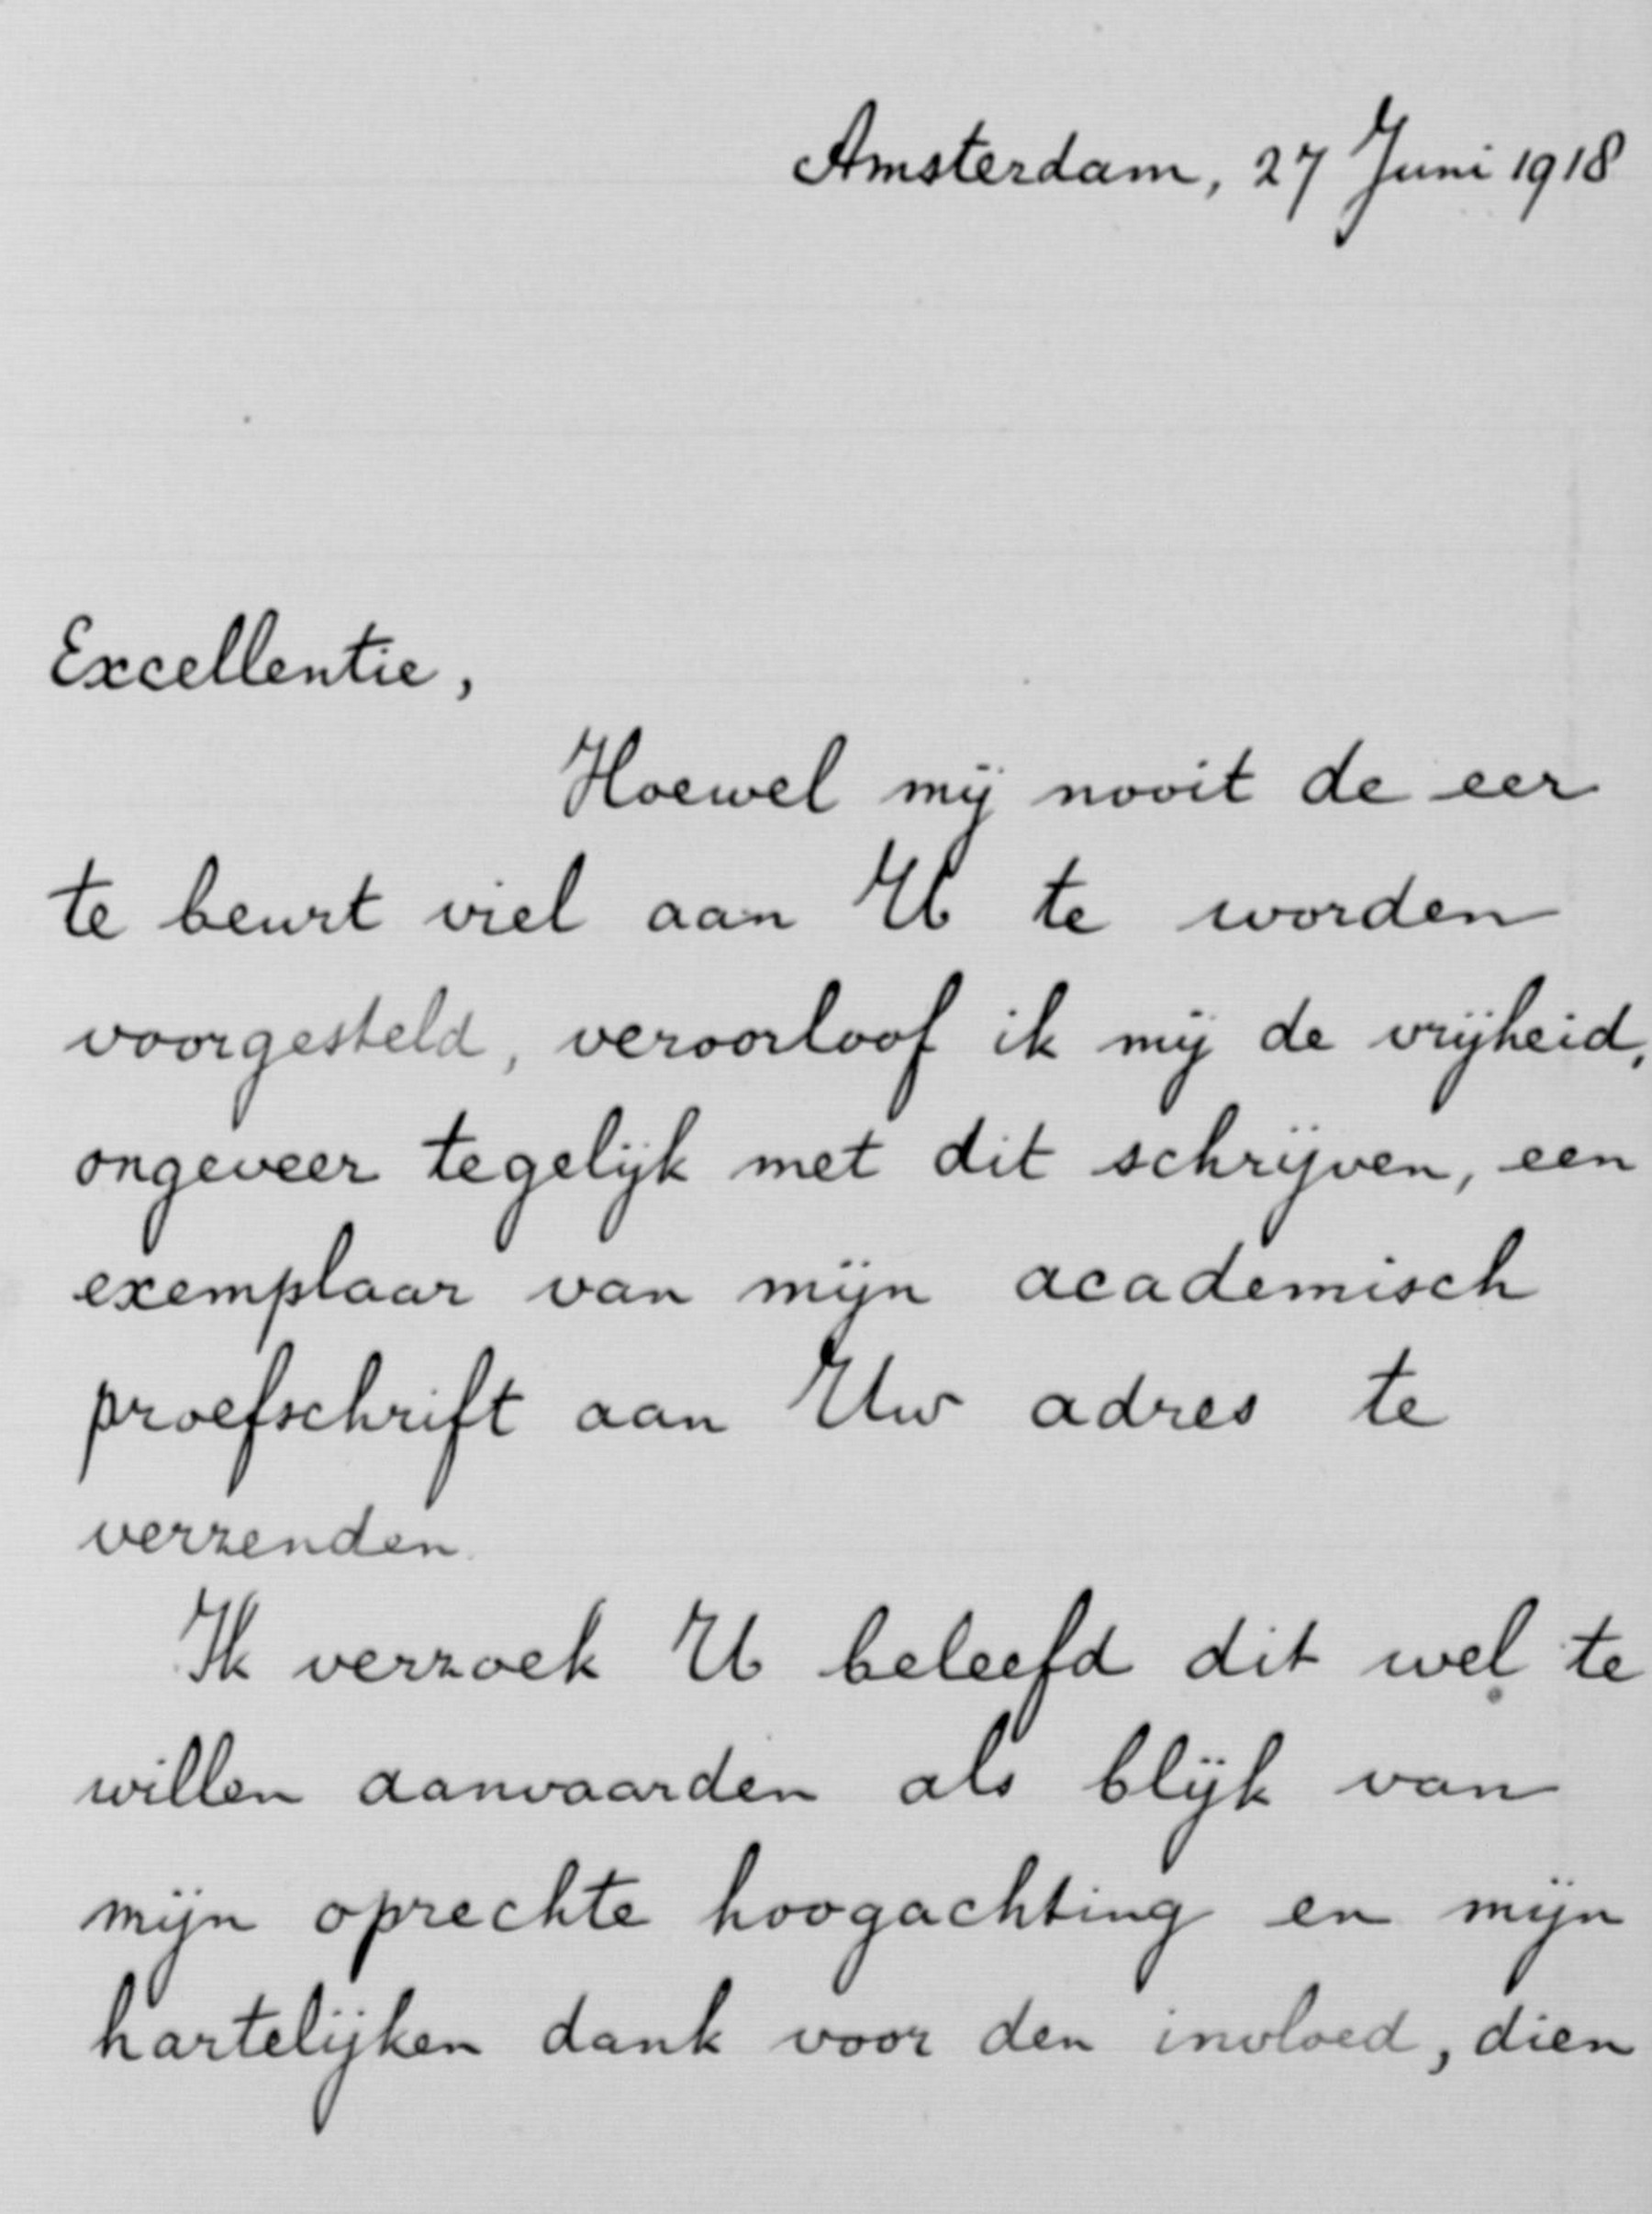 Amsterdam, 27 Juni 1918
Excellentie,
Hoewel mij nooit de eer
te beurt viel aan U te worden
voorgesteld, veroorloof ik mij de vrijheid,
ongeveer tegelijk met dit schrijven, een
exemplaar van mijn academisch
proefschrift aan Uw adres te
verzenden.
Ik verzoek U beleefd dit wel te
willen aanvaarden als blijk van
mijn oprechte hoogachting en mijn
hartelijken dank voor den invloed, dien